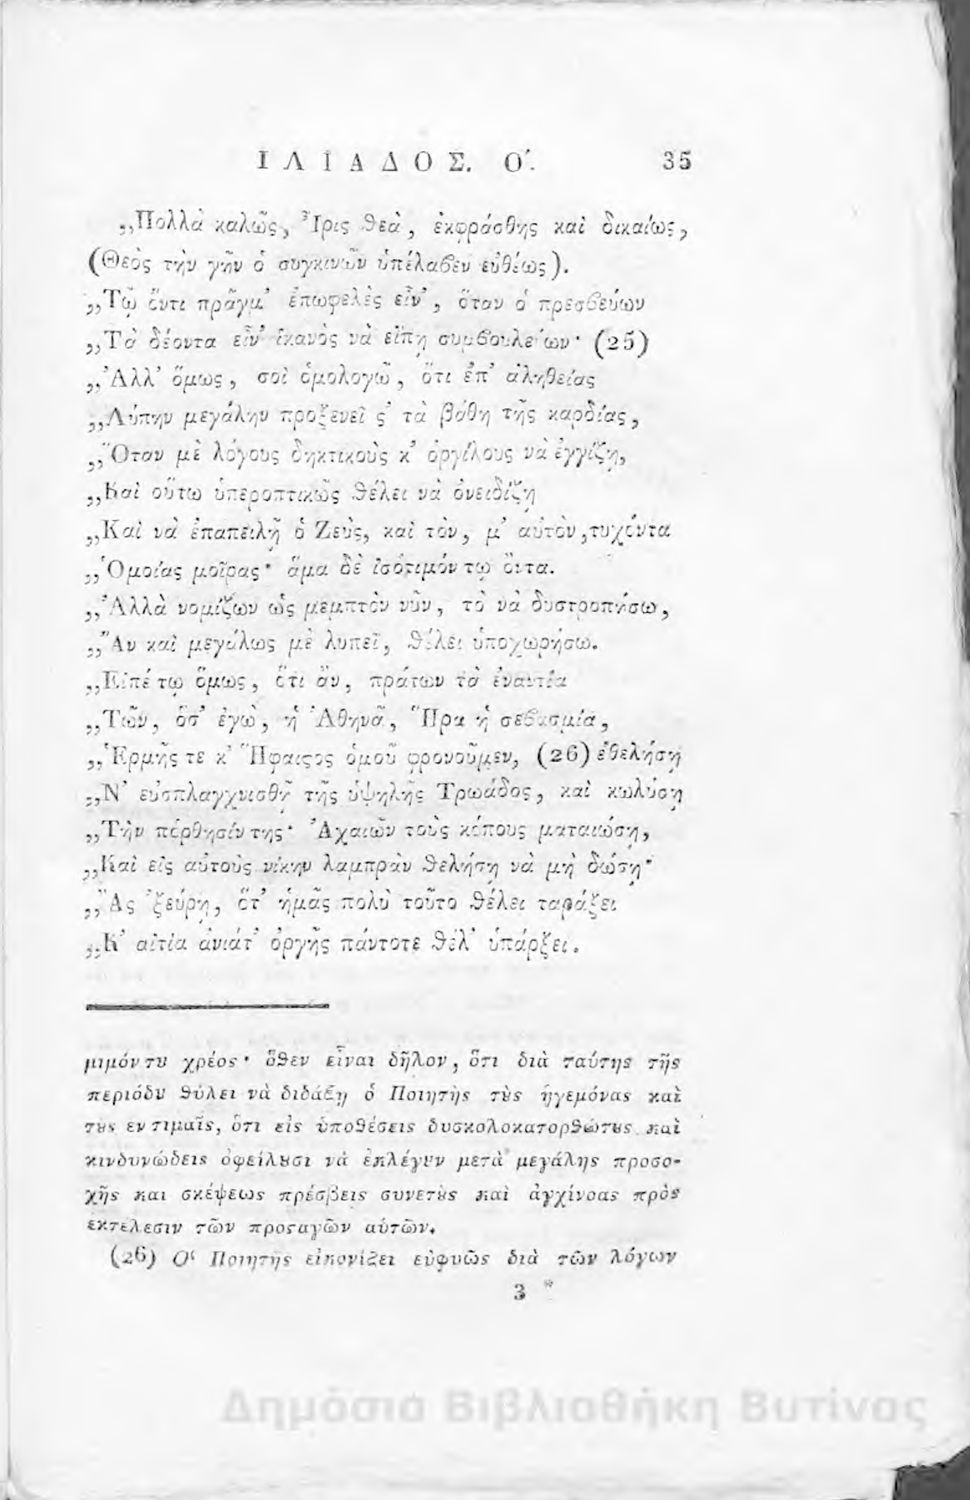 ΙΛΙΑΔΟΣ. Ο'. 35
„Πολλὰ καλῶς, Ἶρις θεὰ, ἐκφράσθης καὶ δικαίως,
(Θεὸς τὴν γῆν ὁ συγκινῶν ὑπέλαβεν εὐθέως).
„Τῷ ὄντι πρᾶγμ' ἐπωφελὲς εἶν', ὅταν ὁ πρεσβεύων
„Τὰ δέοντα εἶν' ἱκανὸς νὰ εἴπῃ συμβουλεύων· (25)
„Ἀλλ' ὅμως, σοὶ ὁμολογῶ, ὅτι ἐπ' ἀληθείας
„Λύπην μεγάλην προξενεῖ ς' τὰ βάθη τῆς καρδίας,
„Ὅταν μὲ λόγους δηκτικοὺς κ' ὀργίλους νὰ ἐγγίζῃ,
„Καὶ οὕτω ὑπεροπτικῶς θέλει νὰ ὀνειδίζῃ
„Καὶ νὰ ἐπαπειλῇ ὁ Ζεὺς, καὶ τὸν, μ' αὐτὸν, τυχόντα
„Ὁμοίας μοῖρας· ἅμα δὲ ἰσότιμόν τῳ ὄντα.
„Ἀλλὰ νομίζων ὡς μεμπτὸν νῦν, τὸ νὰ δυστροπήσω,
„Ἂν καὶ μεγάλως μὲ λυπεῖ, θέλει ὑποχωρήσω.
„Εἰπέ τῳ ὅμως, ὅτι ἂν, πράτων τὰ ἐναντία
„Τῶν, ὅσ' ἐγὼ, ἡ Ἀθηνᾶ, Ἥρα ἡ σεβασμία,
„Ἑρμῆς τε κ' Ἥφαιςος ὁμοῦ φρονοῦμεν, (26) ἐθελήσῃ
„Ν' εὐσπλαγχνισθῇ τῆς ὑψηλῆς Τρωάδος, καὶ κωλύσῃ
„Τὴν πέρθησίν της· Ἀχαιῶν τοὺς κόπους ματαιώσῃ,
„Καὶ εἰς αὐτοὺς νίκην λαμπρὰν θελήσῃ νὰ μὴ δώσῃ·
„Ἂς 'ξεύρῃ, ὅτ' ἡμᾶς πολὺ τοῦτο θέλει ταράξει
„Κ' αἰτία ἀνιάτ' ὀργῆς πάντοτε θέλ' ὑπάρξει.
μιμόντȣ χρέος· ὅθεν εἶναι δῆλον, ὅτι διὰ ταύτης τῆς
περιόδȣ θέλει νὰ διδάξῃ ὁ Ποιητὴς τȣ̀ς ἡγεμόνας καὶ
τȣ̀ς ἐν τιμαῖς, ὅτι εἰς ὑποθέσεις δυσκολοκατορθώτȣς καὶ
κινδυνώδεις ὀφείλȣσι νὰ ἐκλέγȣν μετὰ μεγάλης προσο-
χῆς καὶ σκέψεως πρέσβεις συνετȣ̀ς καὶ ἀγχίνοας πρὸς
ἐκτέλεσιν τῶν προςαγῶν αὑτῶν.
(26) Ὁ Ποιητὴς εἰκονίζει εὐφυῶς διὰ τῶν λόγων
3 *
Δημόσια Βιβλιοθήκη Βυτίνας